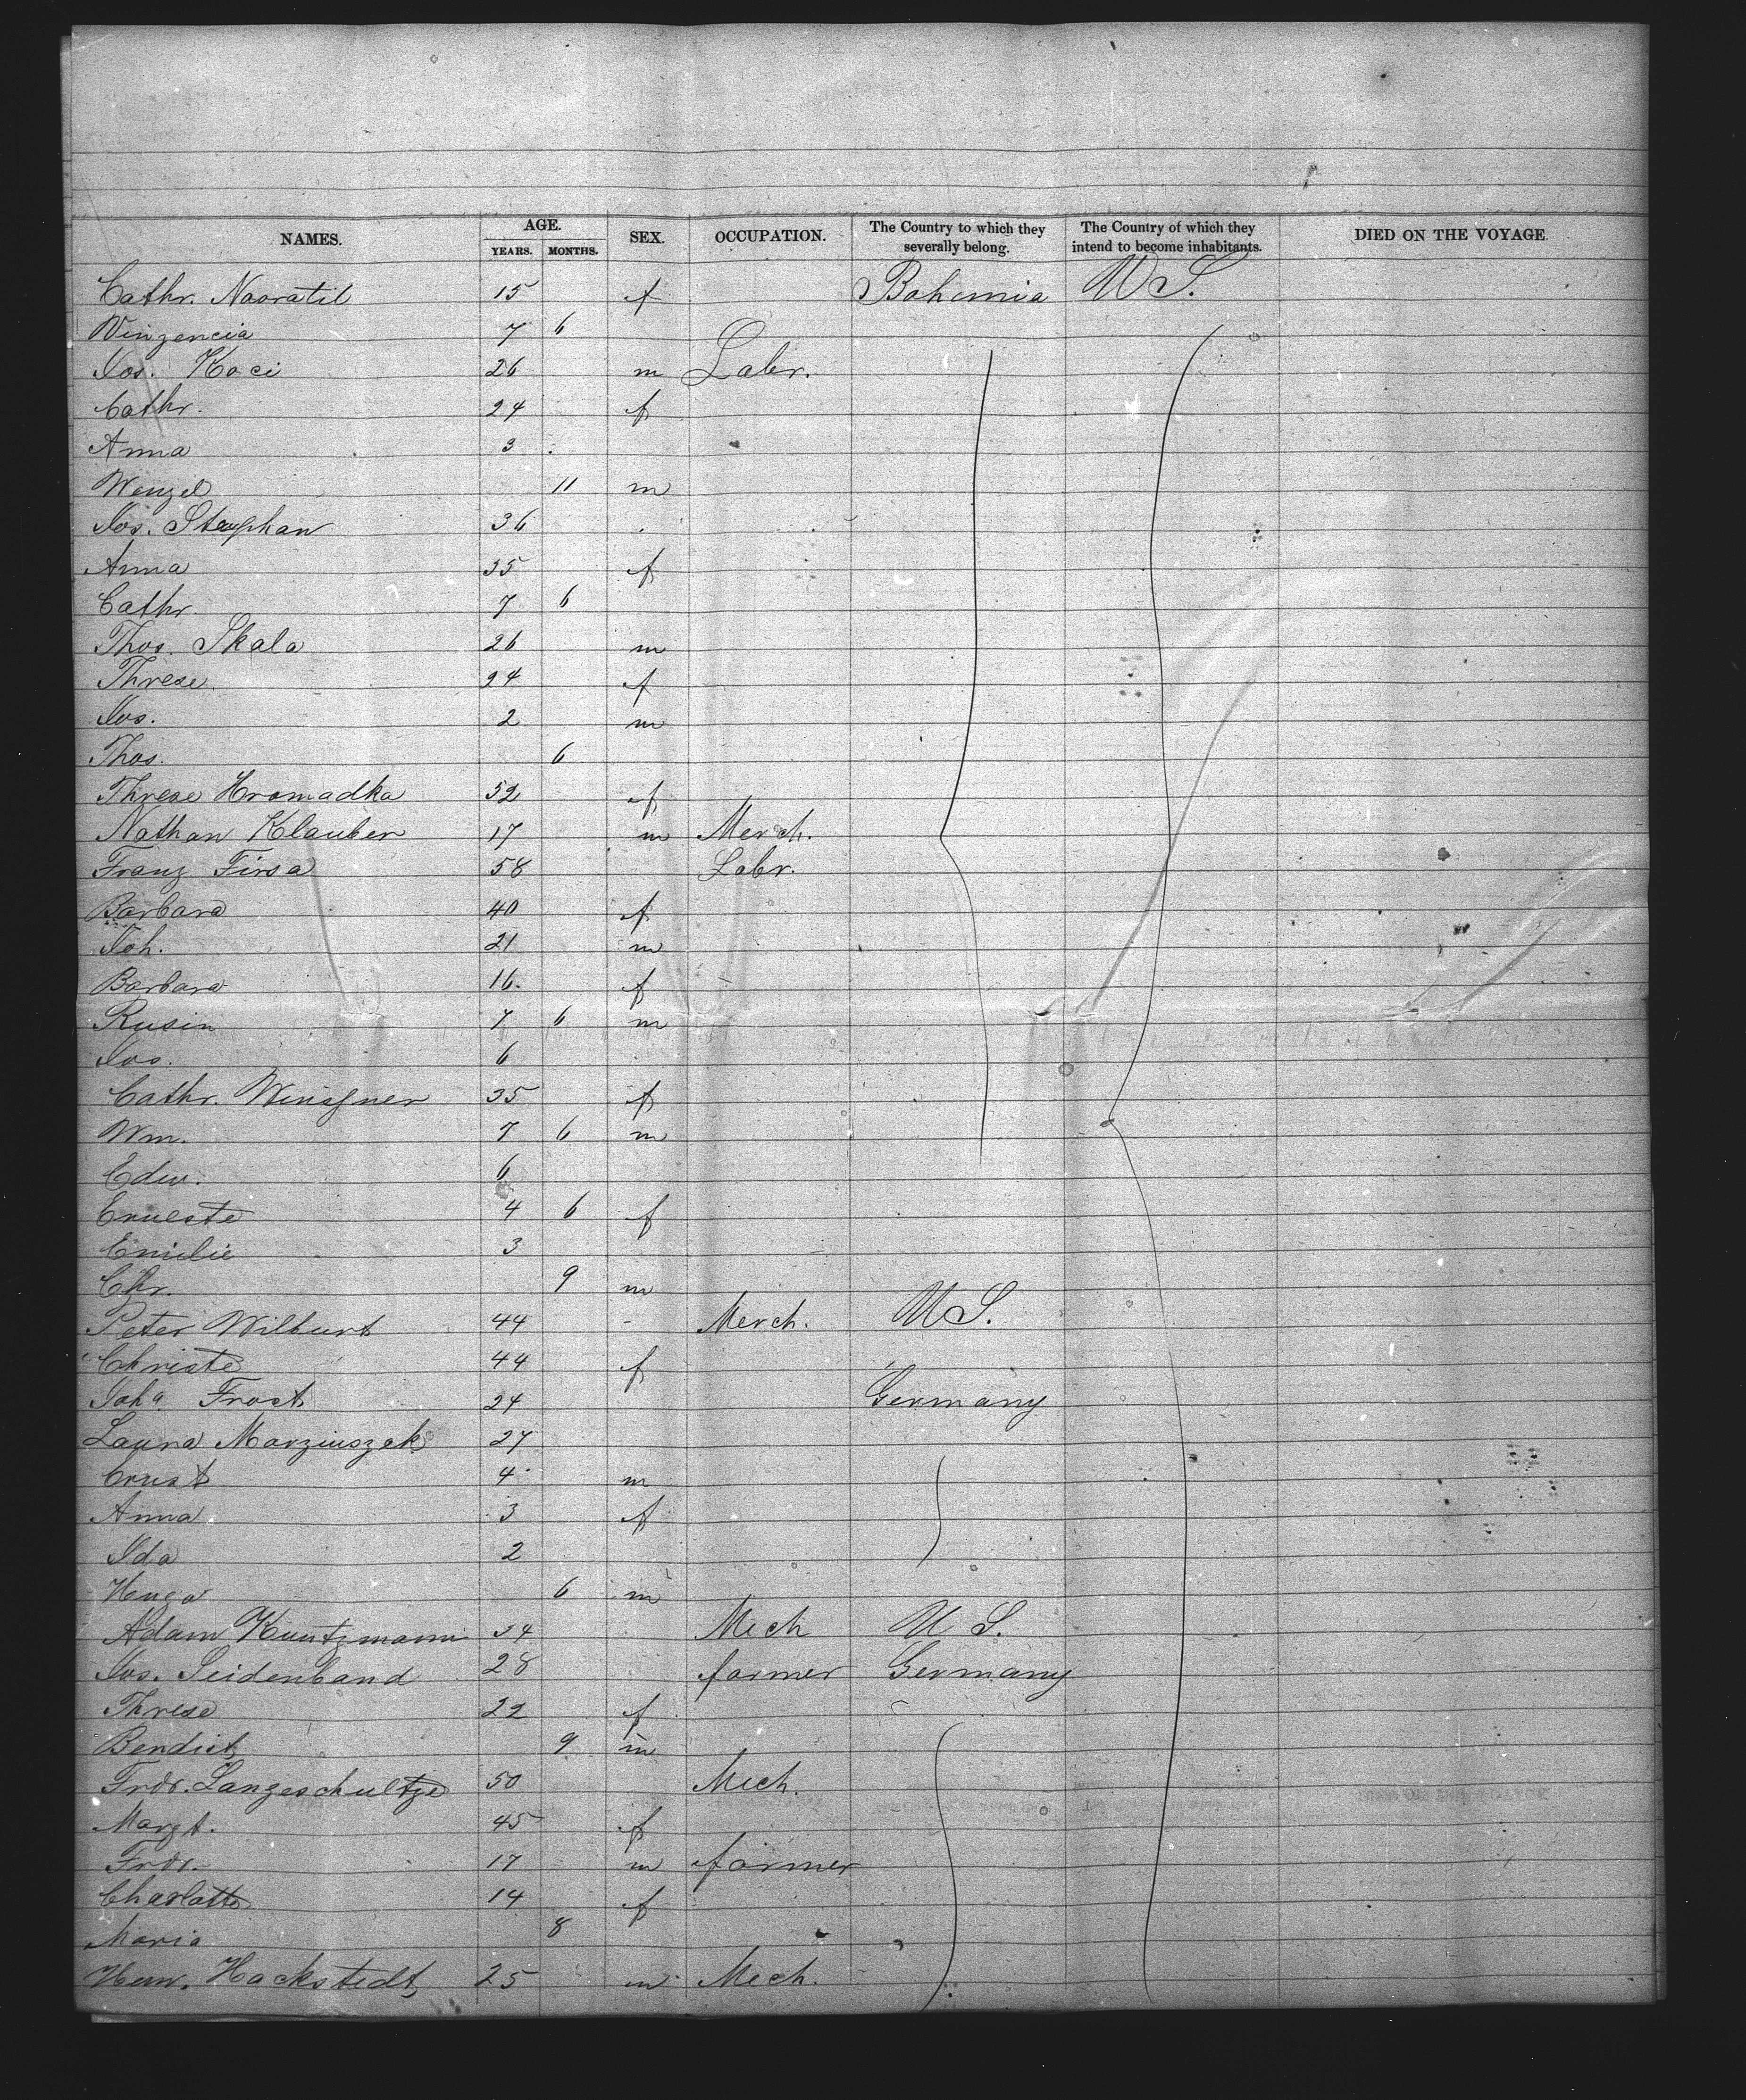 NAMES. AGE. YEARS. MONTHS. SEX. OCCUPATION. The Country to which they severally belong. The Country of which they intend to become inhabitants. DIED ON THE VOYAGE.
Cathr. Navratil 15 f Bohemia U S.
Winzencia 7 6
Jos. Koci 26 m Labr.
Cathr. 24 f
Anna 3
Wenzel 11 m
Jos. Stephan 36
Anna 35 f
Cathr. 7 6
Thos. Skala 26 m
Threse 24 f
Jos. 2 m
Thos. 6
Threse Hromadka 52 f
Nathan Klauber 17 m Merch.
Franz Firsa 58 Labr.
Barbara 40 f
Joh. 21 m
Barbara 16. f
Rusin 7 6 m
Jos. 6
Cathr. 35 f
Wm. 7 6 m
Edw. 6
Erneste 4 6 f
Emilie 3
Chr. 9 m
Peter Wilburt 44 - Merch. U S.
Christe 44 f
Joha Frost 24 Germany
Laura Marziuszek 27
Ernst 4 m
Anna 3 f
Ida 2
Hugo 6 m
Adam Kuntzmann 34 Mech U S.
Jos. Seidenband 28 farmer Germany
Threse 22 f
Bendict 9 m
Frdr. Langeschultze 50 Mech.
Margt. 45 f
Frdr. 17 m farmer
Charlotte 14 f
Maria 8
Herm. Hackstedt 25 m Mech.